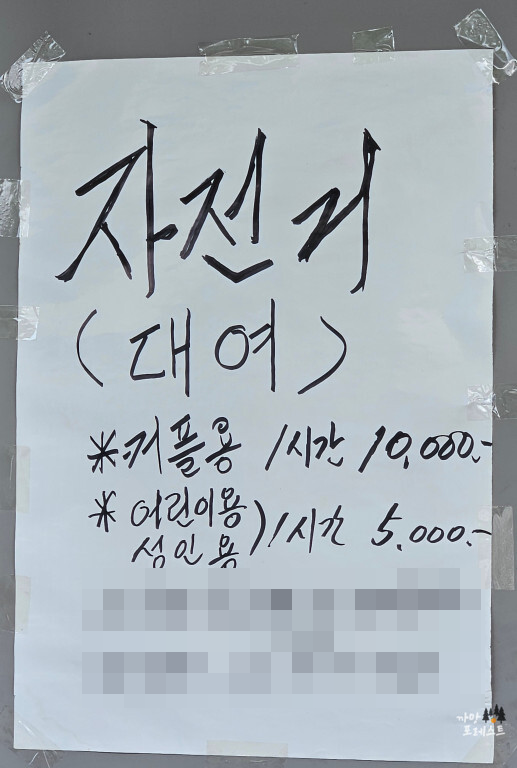 자전거
(대여)
※커플용 1시간 10,000.-
※ 어린이용
성인용 ) 1시간 5,000.-
까아
포레스트